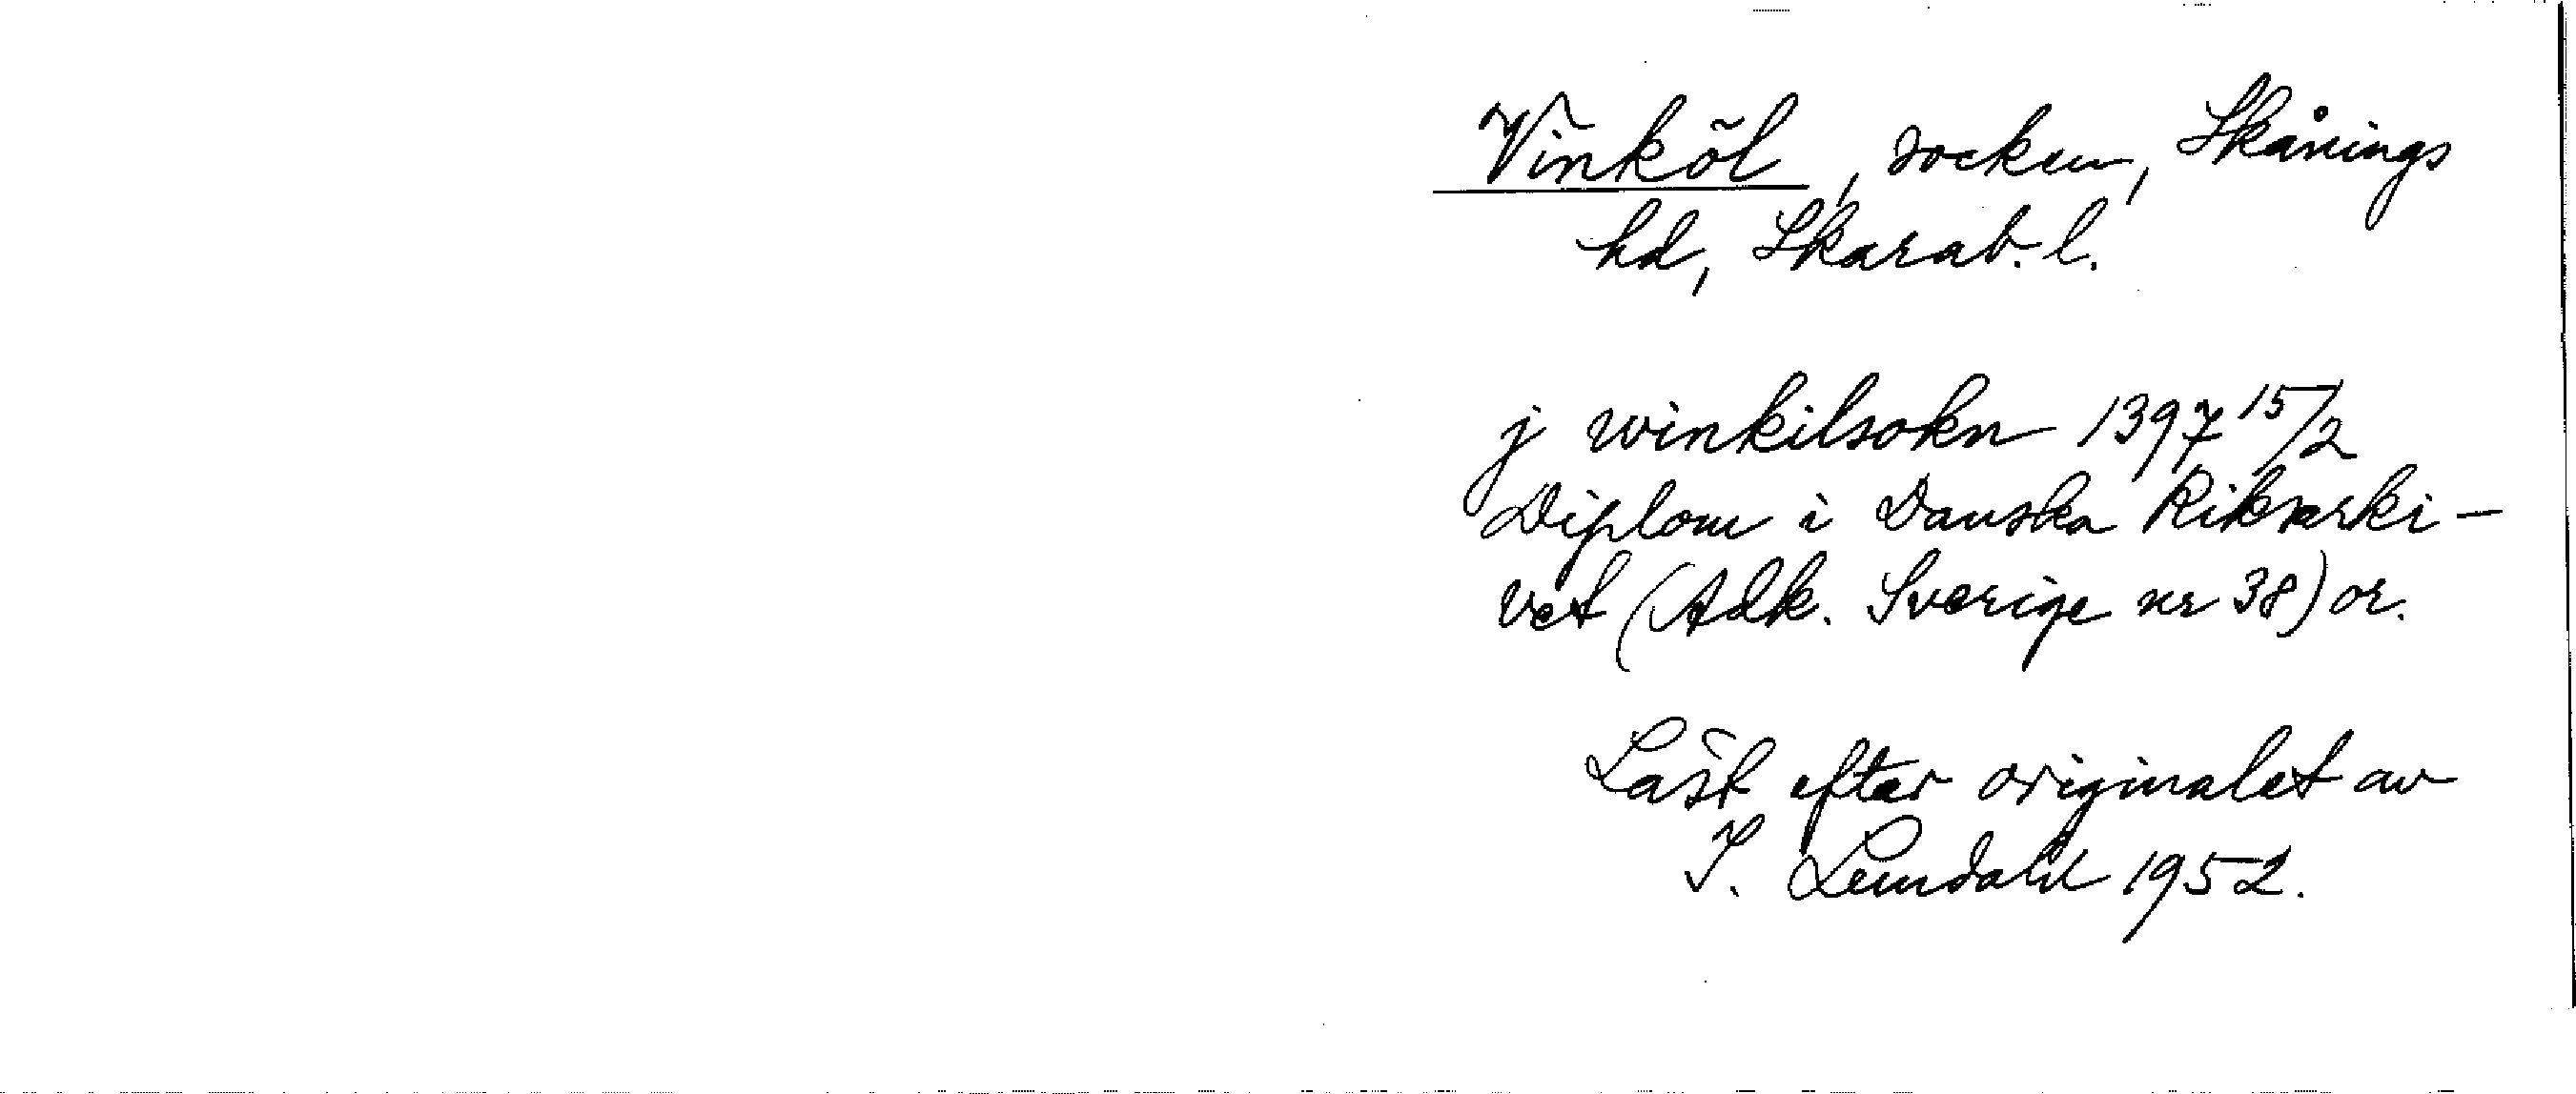 Vinköl, socken, Skånings
hd, Skarab. l.
j winkilsokn 1397 15/2
Diplom i Danska Riksarki-
vet (Adk. Sverige nr 38) or.
Läst efter originalet av
I. Lundahl 1952.